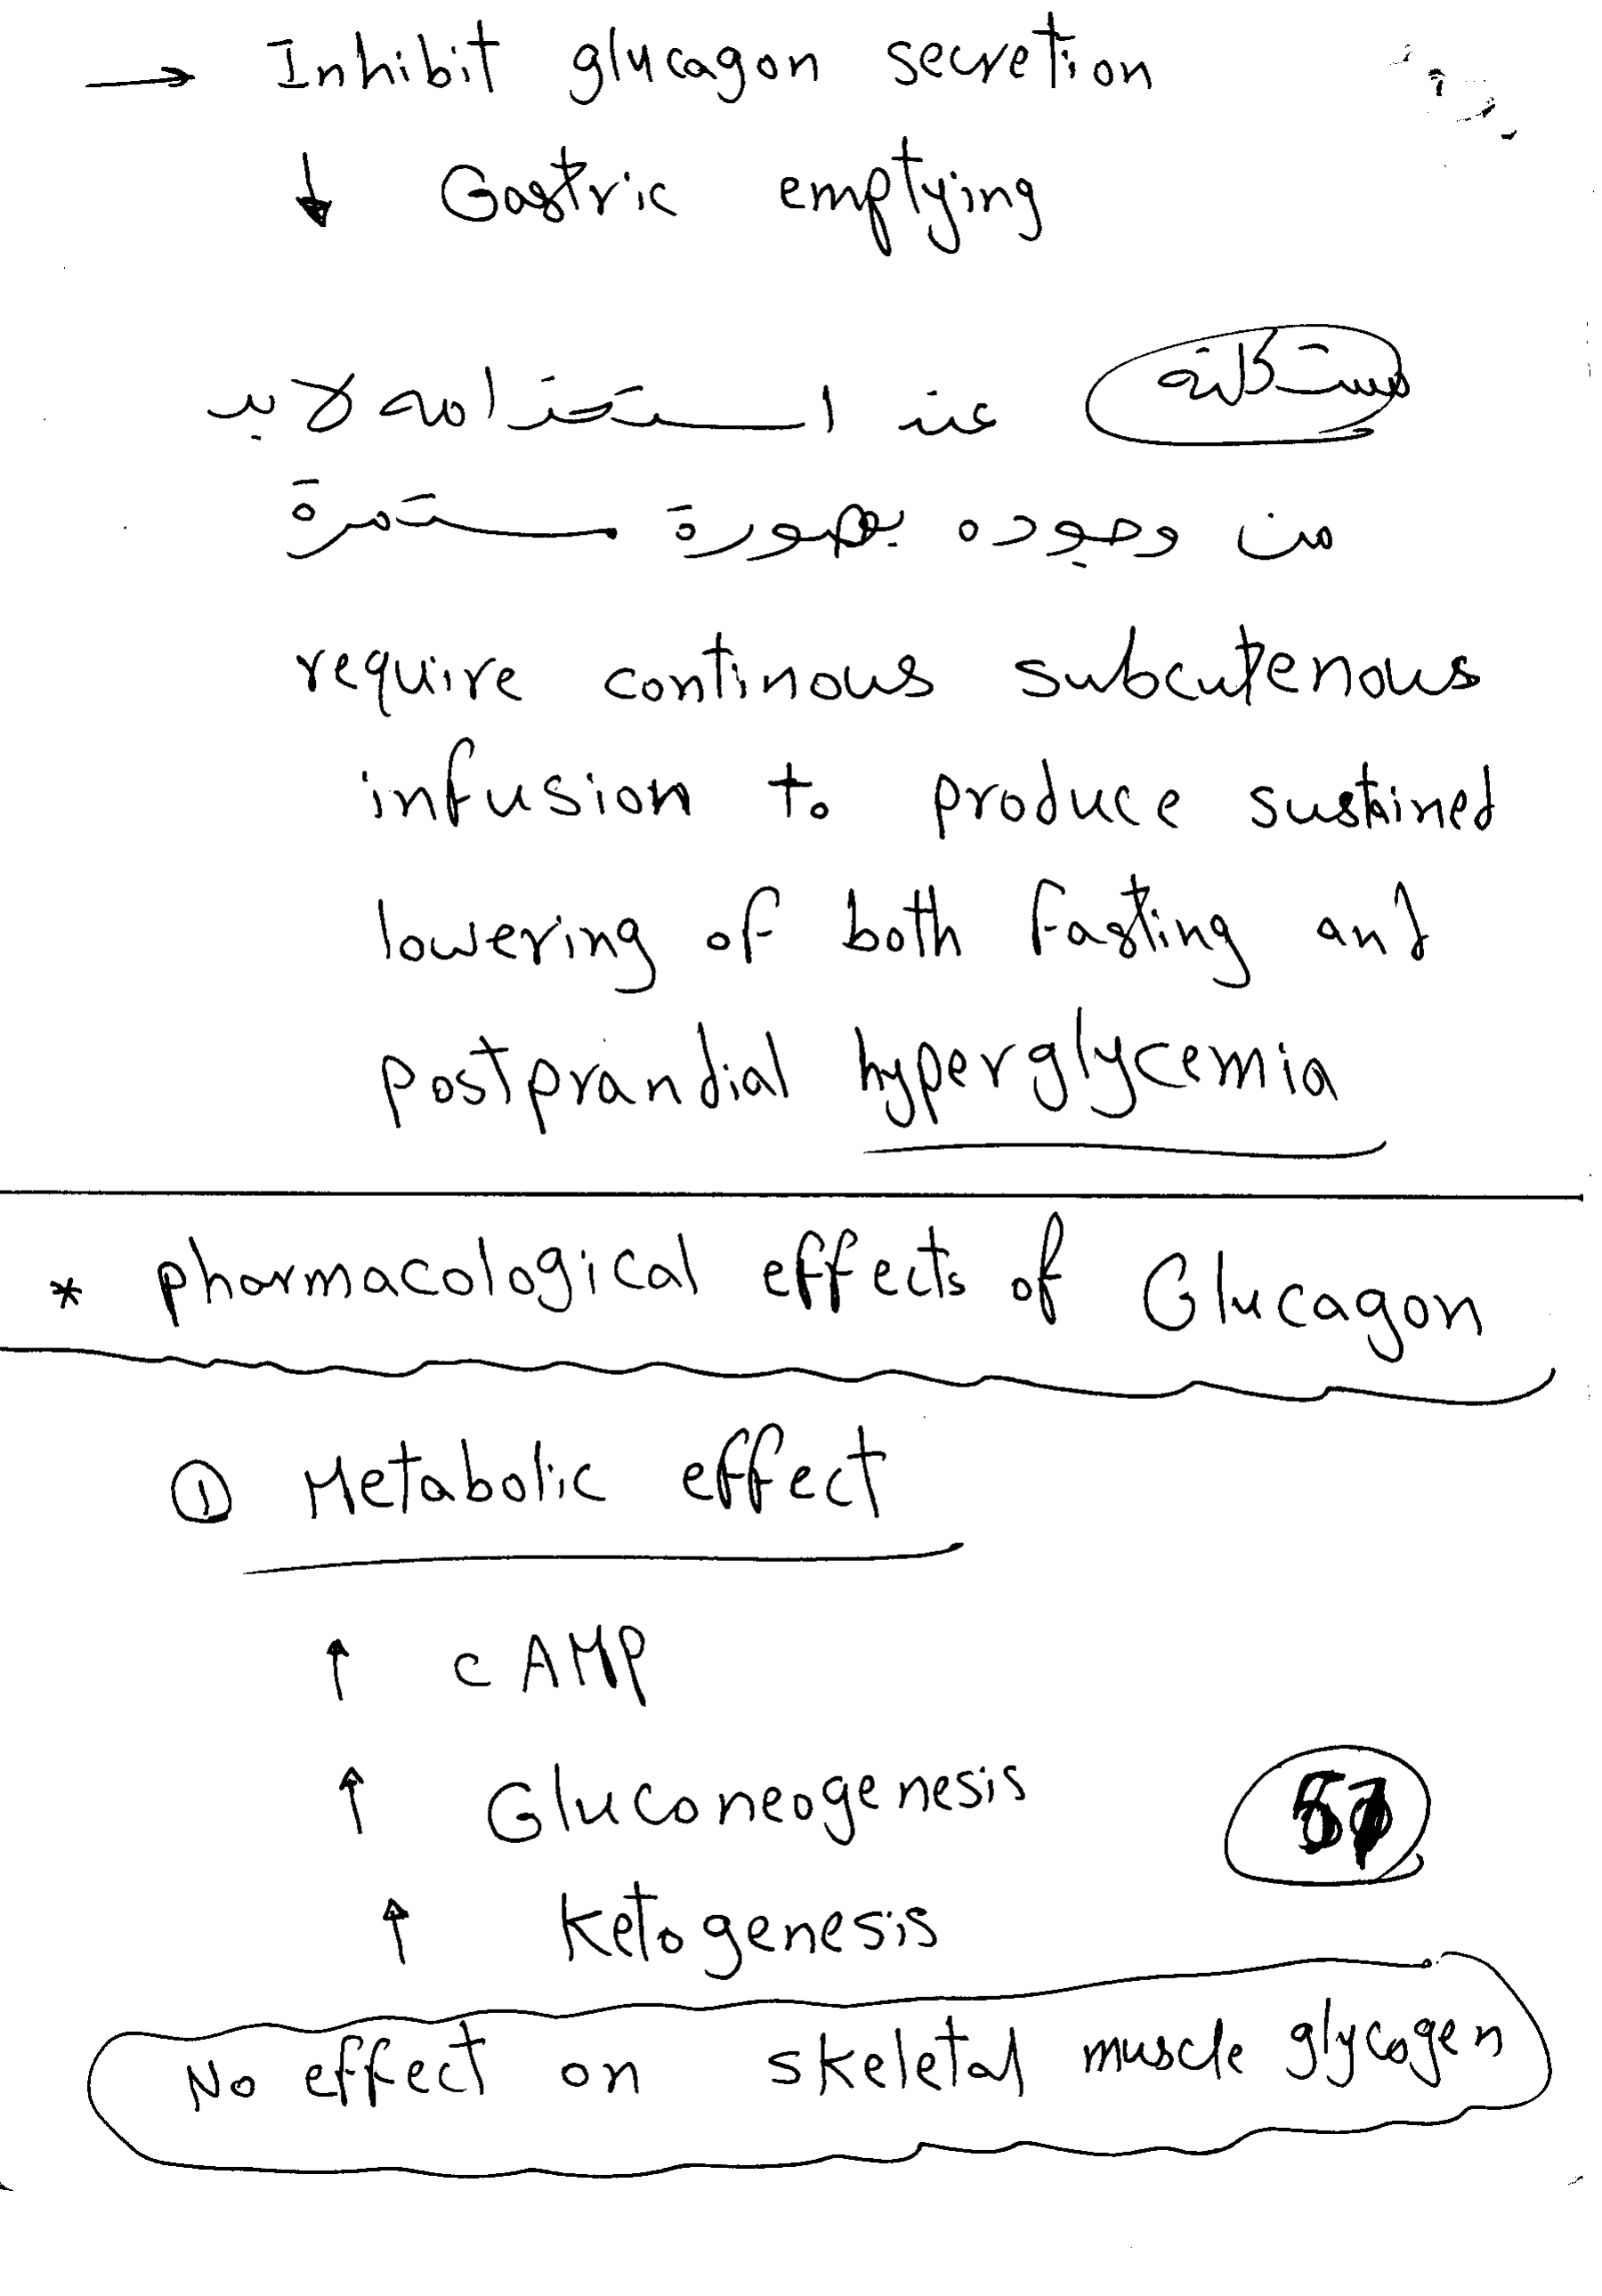 → Inhibit glucagon secretion
↓ Gastric emptying
مشكلته عند استخدامه لا بد
من وجوده بصورة مستمرة
require continous subcutenous
infusion to produce sustined
lowering of both fasting and
postprandial hyperglycemia
* pharmacological effects of Glucagon
① Metabolic effect
↑ cAMP
↑ Gluconeogenesis
↑ Ketogenesis
No effect on skeletal muscle glycogen